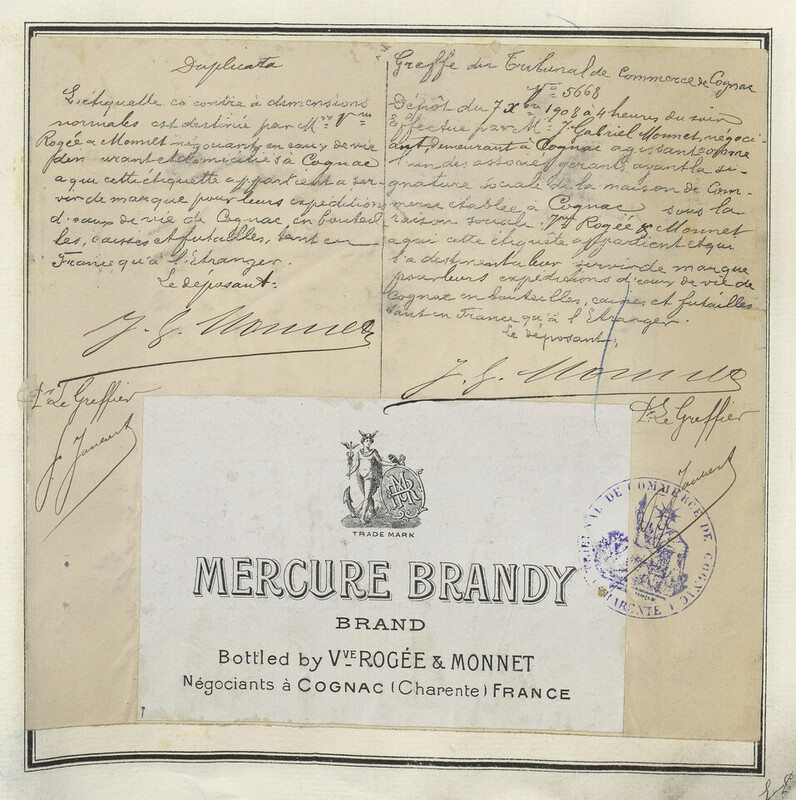 Duplicata
L'étiquette ci contre à dimensions
normales est destinée par Mme Vve
Rogée & Monnet négociants en eaux de vie
demeurant et domiciliés à Cognac
a qui cette étiquette appartient a ser-
vir de marque pour leurs expéditions
d'eaux de vie de Cognac en bouteil
les, caisses et futailles, tant en
France qu'à l'Etranger.
Le déposant:
J. G. Monnet
Pr Le Greffier
J. Januert
Greffe du Tribunal de Commerce de Cognac
No 5668
Dépôt du 7 Xbre 1908 à 4 heures du soir
Effectué par Mr J. Gabriel Monnet, négoci-
ant demeurant à Cognac agissant comme
l'un des associés gérant, ayant la si-
gnature sociale de la maison de Com-
merce établie à Cognac sous la
raison sociale Vve Rogée & Monnet
a qui cette étiquette appartient et qui
l'a destine a leur servir de marque
pour leurs expéditions d'eaux de vie de
Cognac en bouteilles, caisses et futailles
tant en France qu'à l'Etranger.
Le déposant,
J. G. Monnet
Pr Le Greffier
TRIBUNAL DE COMMERCE DE COGNAC
CHARENTE
TRADE MARK
MERCURE BRANDY
BRAND
Bottled by Vve ROGÉE & MONNET
Négociants à COGNAC (Charente) FRANCE